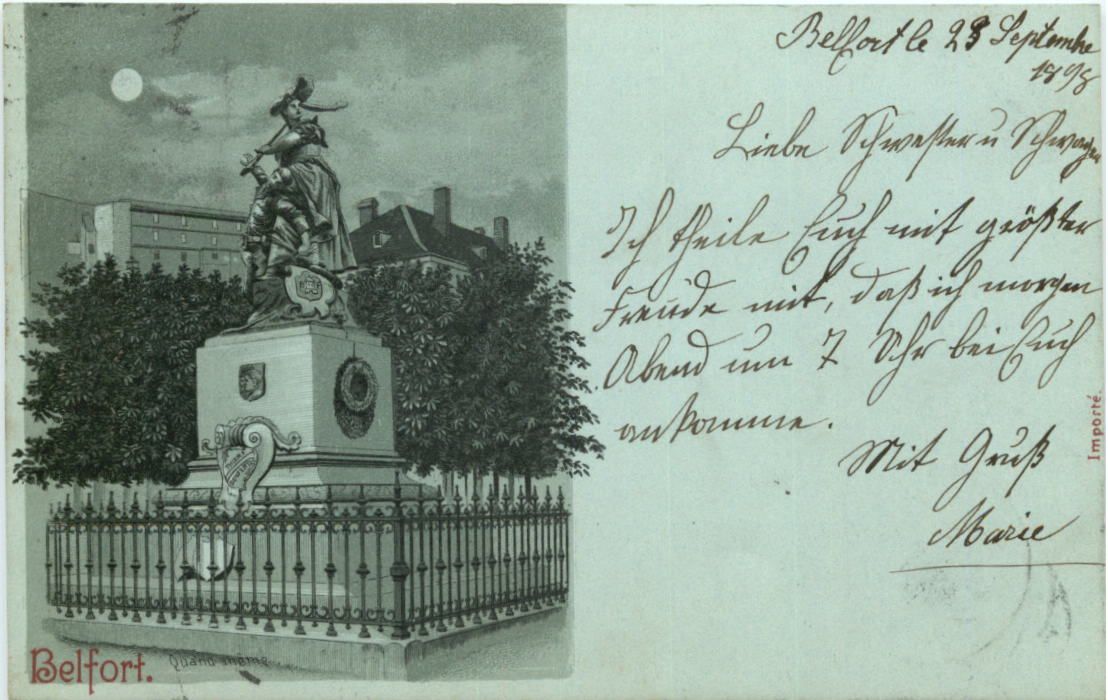 Belfort le 23 Septembre
1898
Liebe Schwester u Schwager
Ich theile Euch mit größter
Freude mit, daß ich morgen
Abend um 7 Uhr bei Euch
ankomme.
Mit Gruß
Marie
Importé.
Belfort.
Quand même